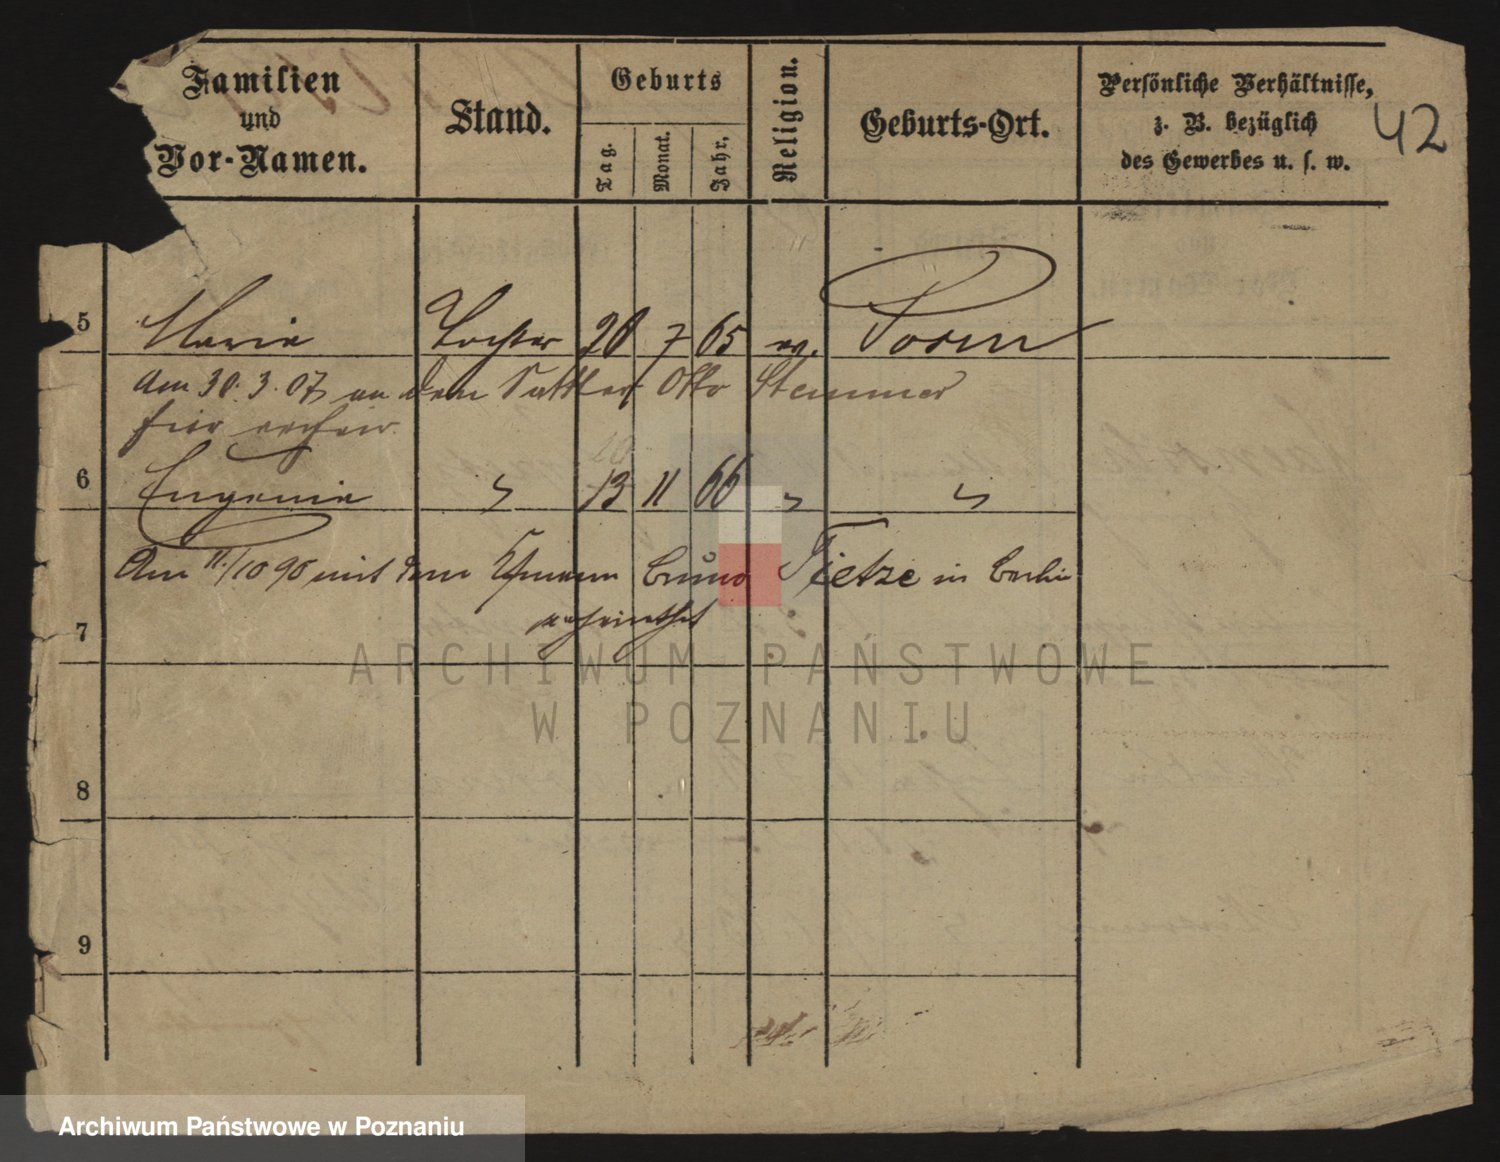 Familien
und
Vor-Namen.
Stand.
Geburts
Tag.
Monat.
Jahr.
Religion.
Geburts-Ort.
Persönliche Verhältnisse,
z. B. bezüglich
des Gewerbes u. s. w.
42
5 Maria Tochter 20 7 65 ev. Posen
Am 30.3.07 an den Sattler Otto Stemmer
hier verheir.
6 Eugenie " 13 11 66 " "
Am 11./10 90 mit dem Kfmann Bruno Tietze in Berlin
verheirathet
7
8
9
ARCHIWUM PAŃSTWOWE
W POZNANIU
Archiwum Państwowe w Poznaniu